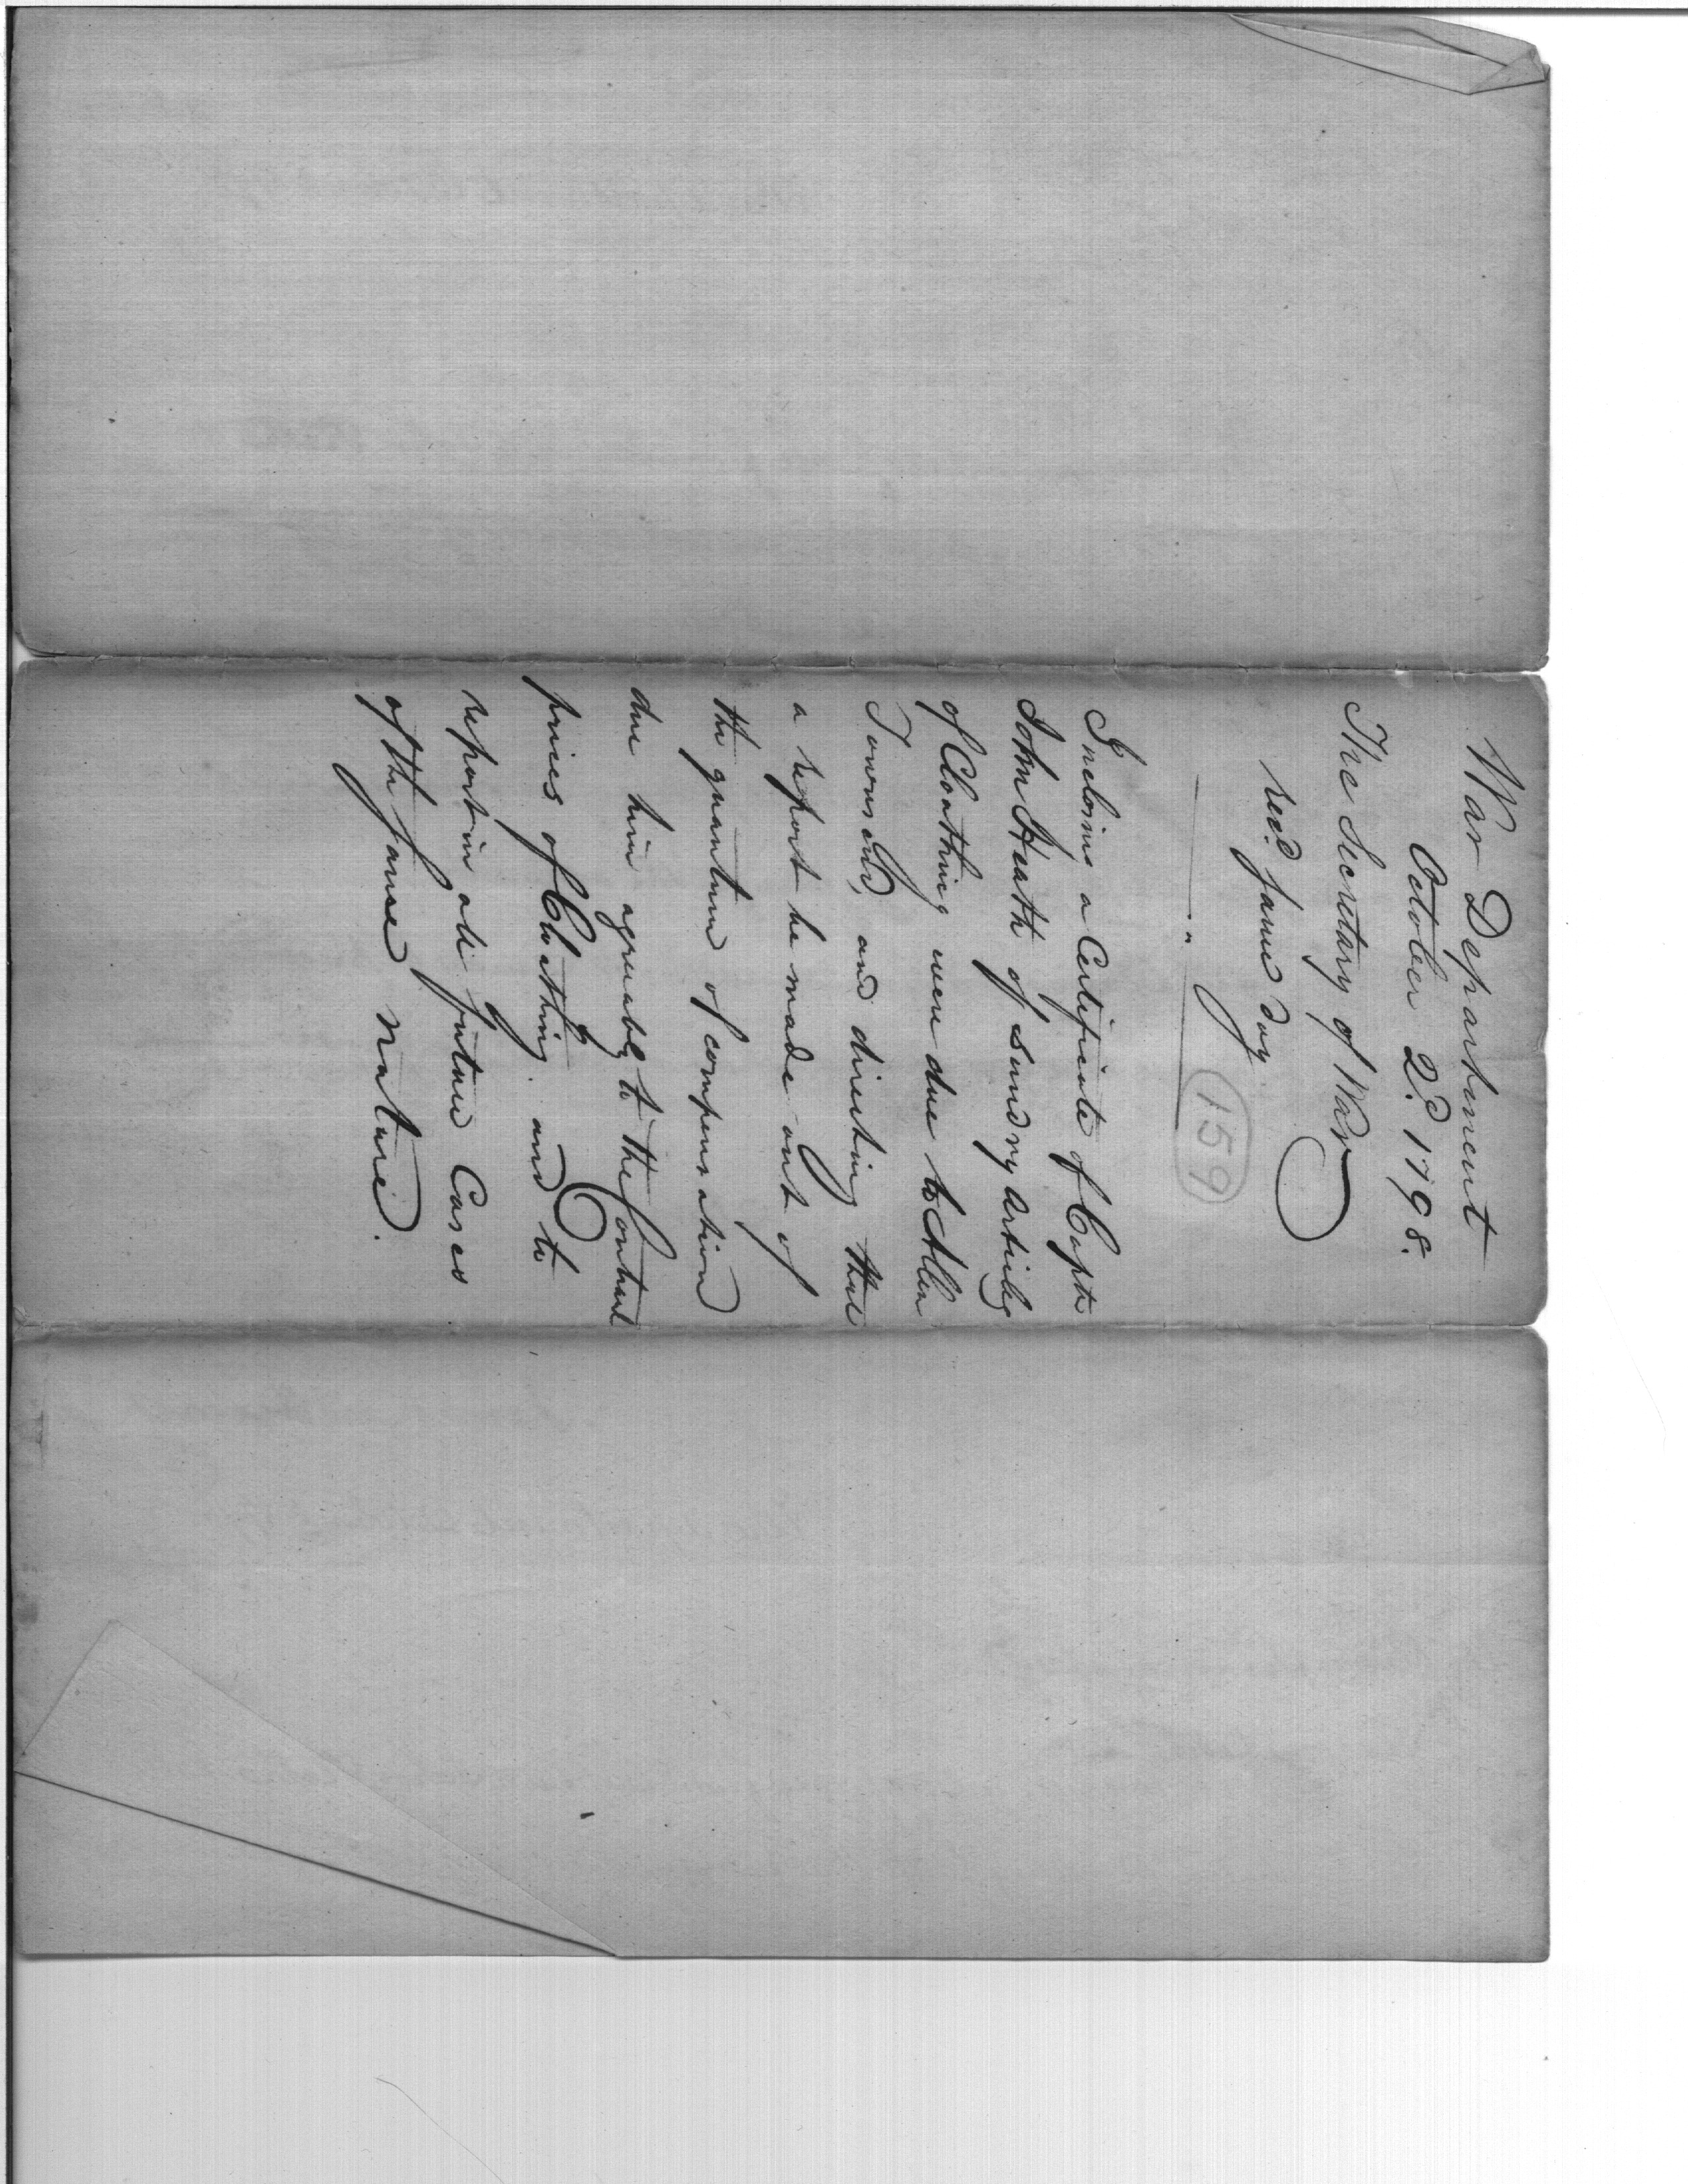 War Department
October 2d. 1798.
The Secretary of War
recd. same day
159
Inclosing a Certificate of Capt
John Heath of sundry Articles
of Cloathing were due to Allen
Townsend, and directing that
a report be made out of
the quantum of compensation
due him agreeably to the Contract
prices of Cloathing. and to
report in all future Cases
of the same nature.